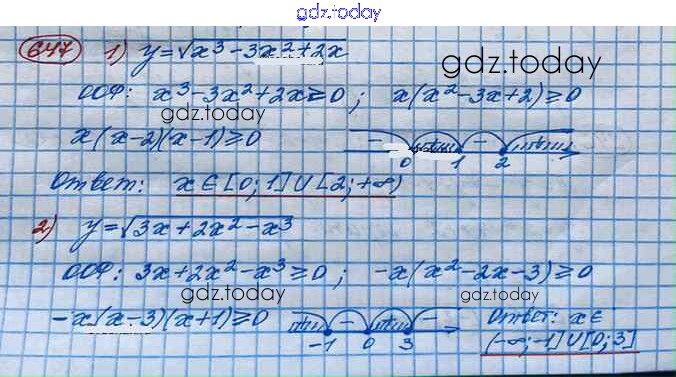 gdz.today
647 1) y=√x³-3x²+2x
gdz.today
ООФ: x³-3x²+2x≥0; x(x²-3x+2)≥0
gdz.today
x(x-2)(x-1)≥0 - + - + 0 1 2
Ответ: x∈[0;1]∪[2;+∞)
2) y=√3x+2x²-x³
ООФ: 3x+2x²-x³≥0; -x(x²-2x-3)≥0
gdz.today gdz.today
-x(x-3)(x+1)≥0 + - + - -1 0 3 Ответ: x∈
(-∞;-1]∪[0;3]